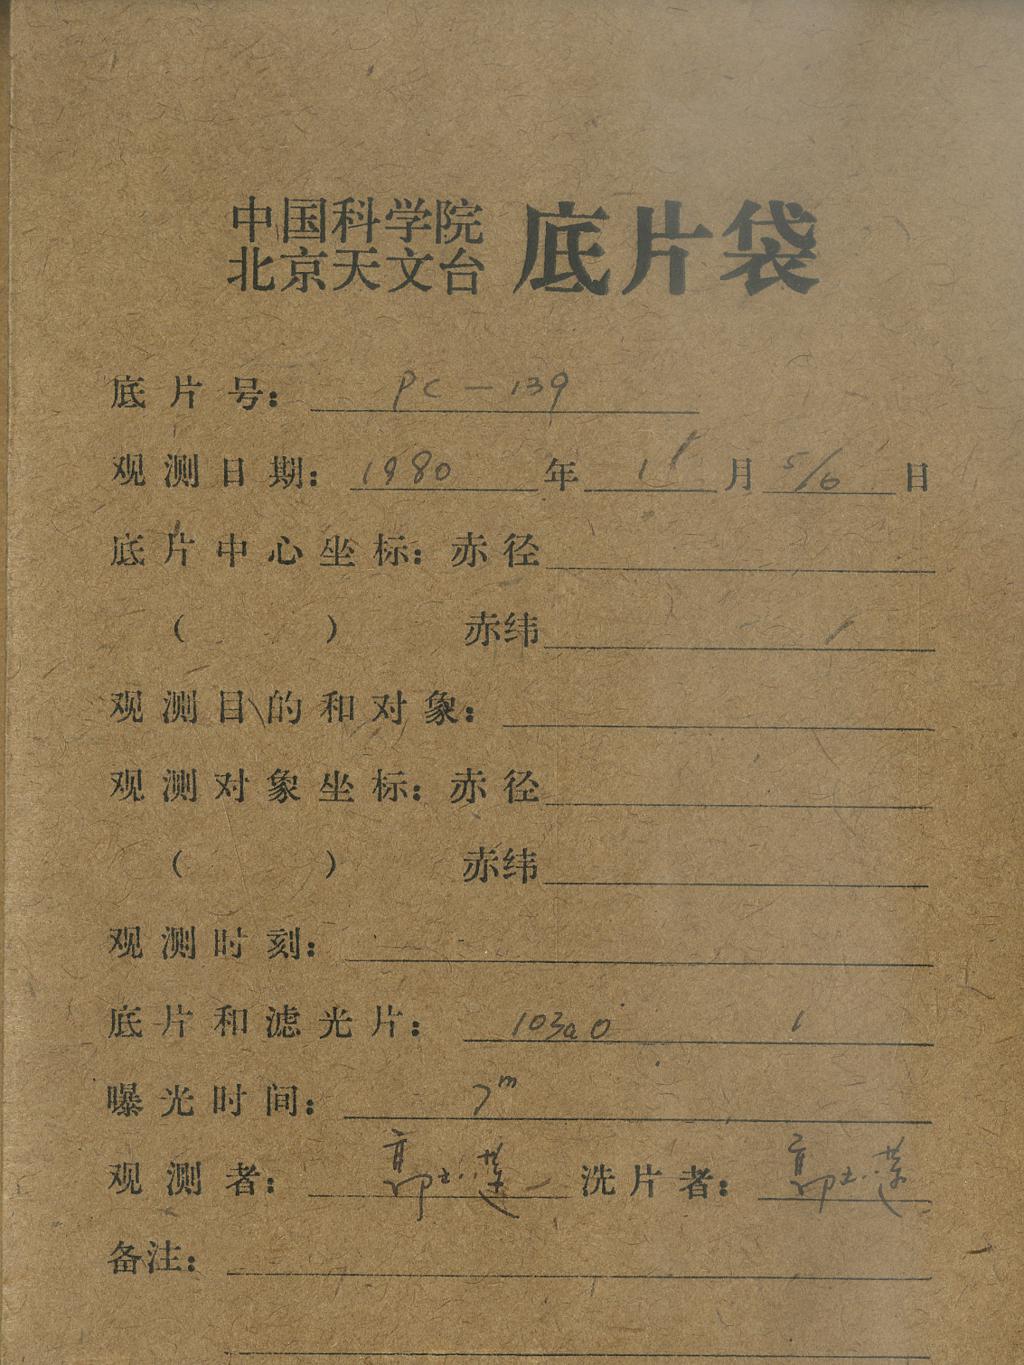 中国科学院
北京天文台 底片袋
底片号： PC-139
观测日期：1980年11月5/6日
底片中心坐标：赤径
（ ） 赤纬
观测目的和对象：
观测对象坐标：赤径
（ ） 赤纬
观测时刻：
底片和滤光片： 103aO
曝光时间： 7m
观测者： 郭 洗片者： 郭
备注：